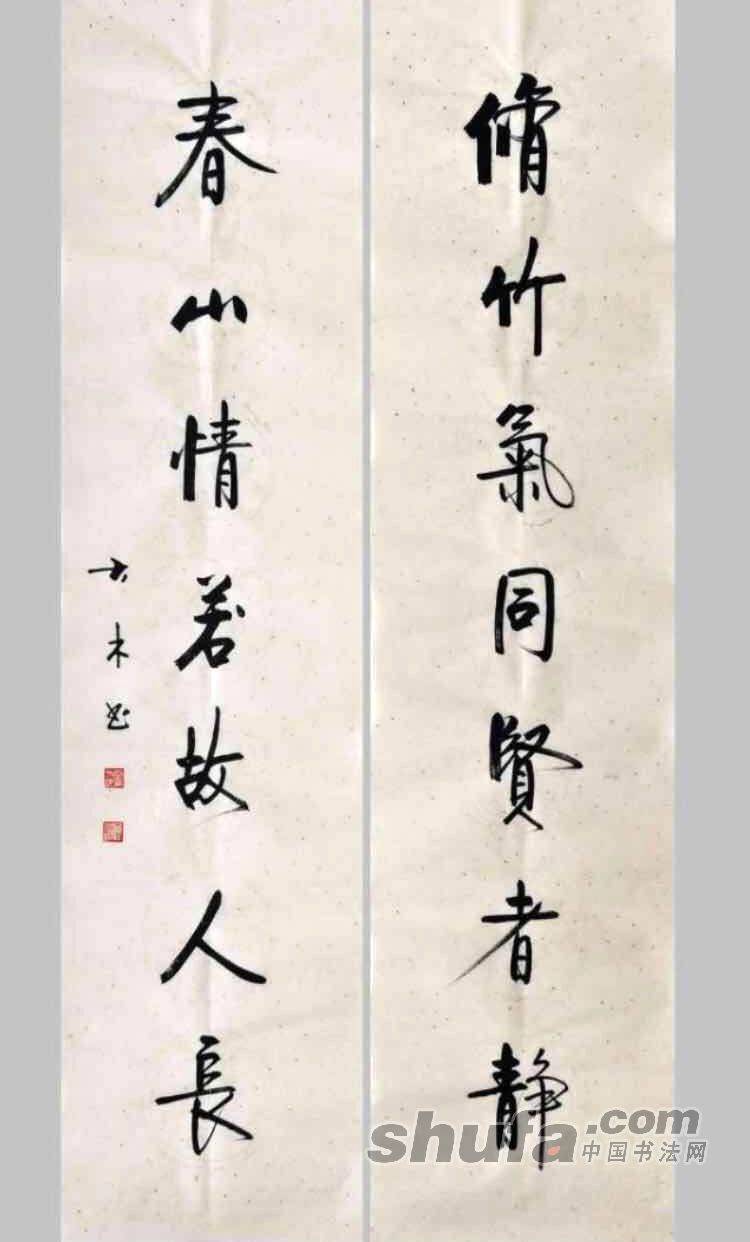 脩竹氣同賢者静
春山情若故人長
木書
shufa.com
中国书法网